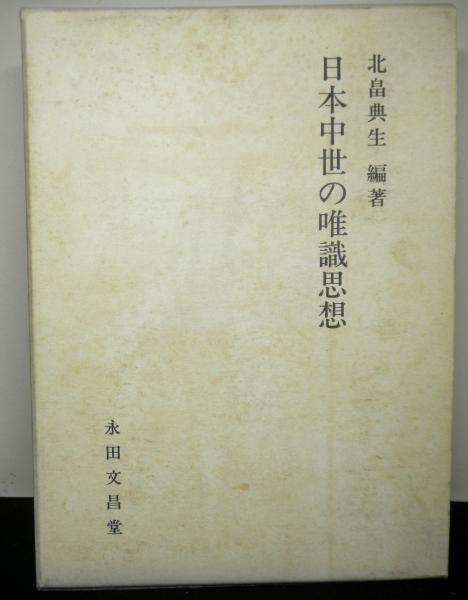 北畠典生 編著
日本中世の唯識思想
永田文昌堂